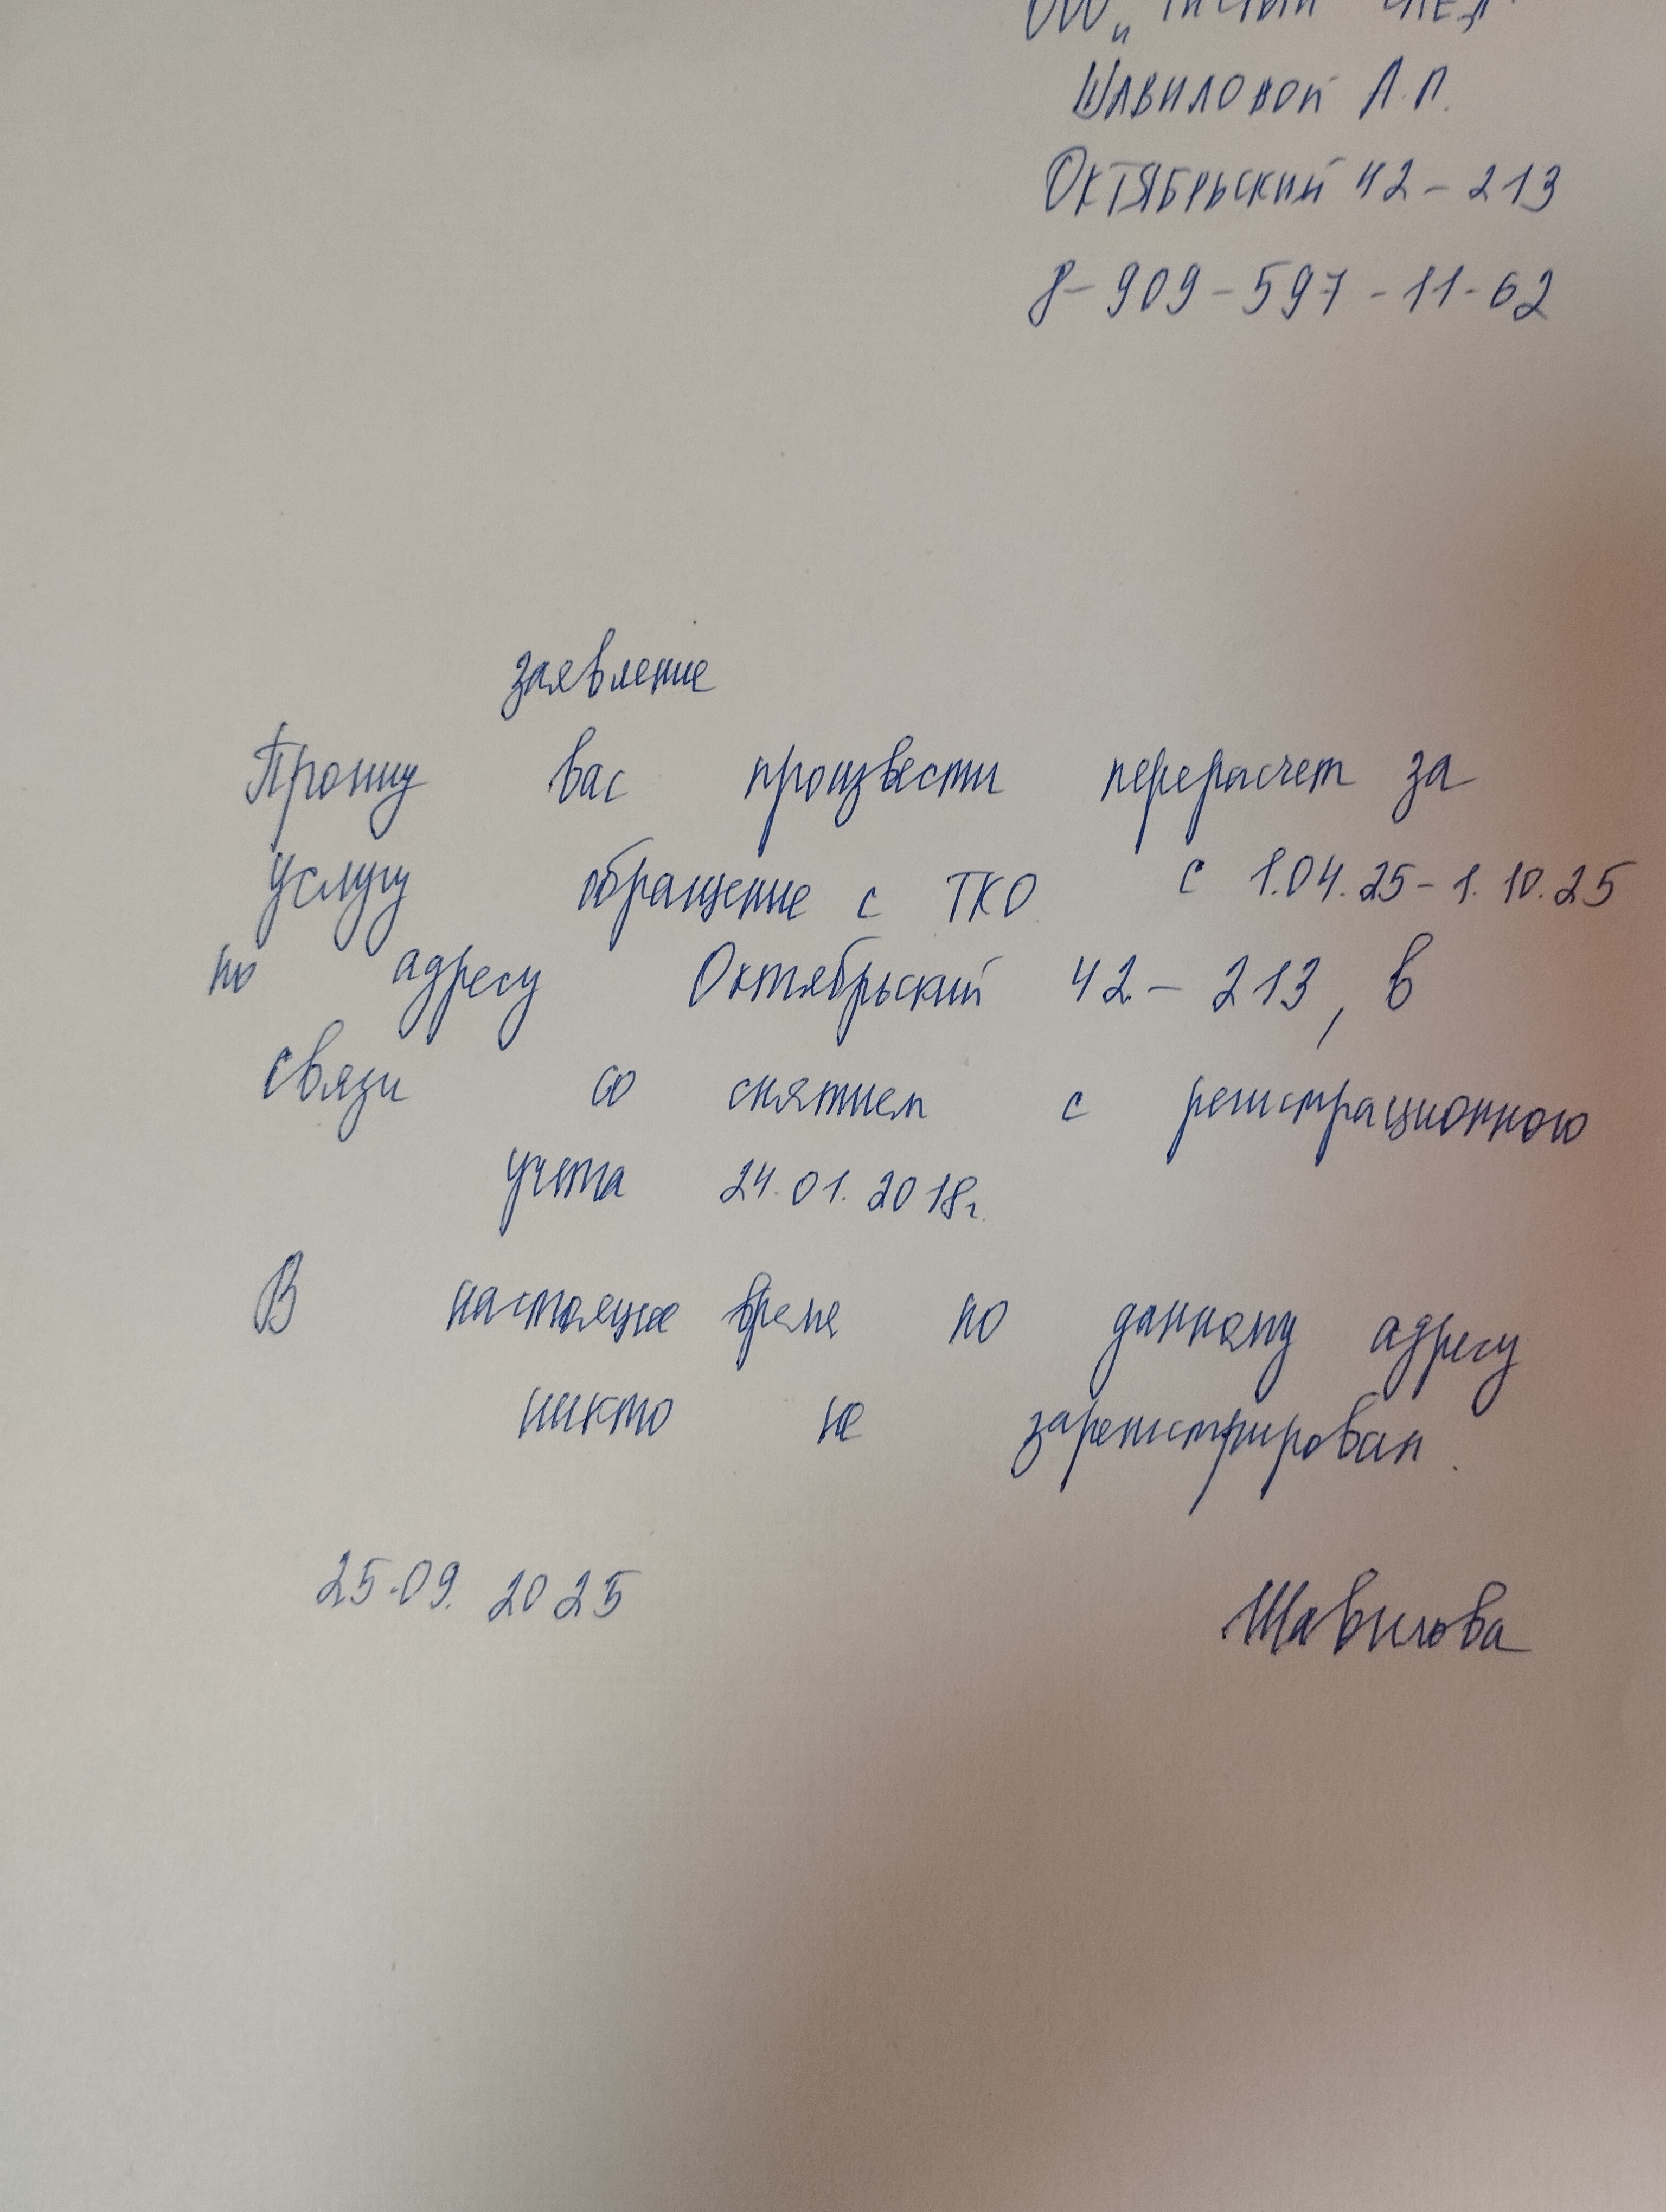 ООО „Чистый след"
Шавиловой А.П.
Октябрьский 42 - 213
8-909-597-11-62
заявление
Прошу вас произвести перерасчет за
услугу обращение с ТКО с 1.04.25 - 1.10.25
по адресу Октябрьский 42 - 213, в
связи со снятием с регистрационного
учета 24.01.2018г.
В настоящее время по данному адресу
никто не зарегистрирован.
25.09.2025 Шавилова